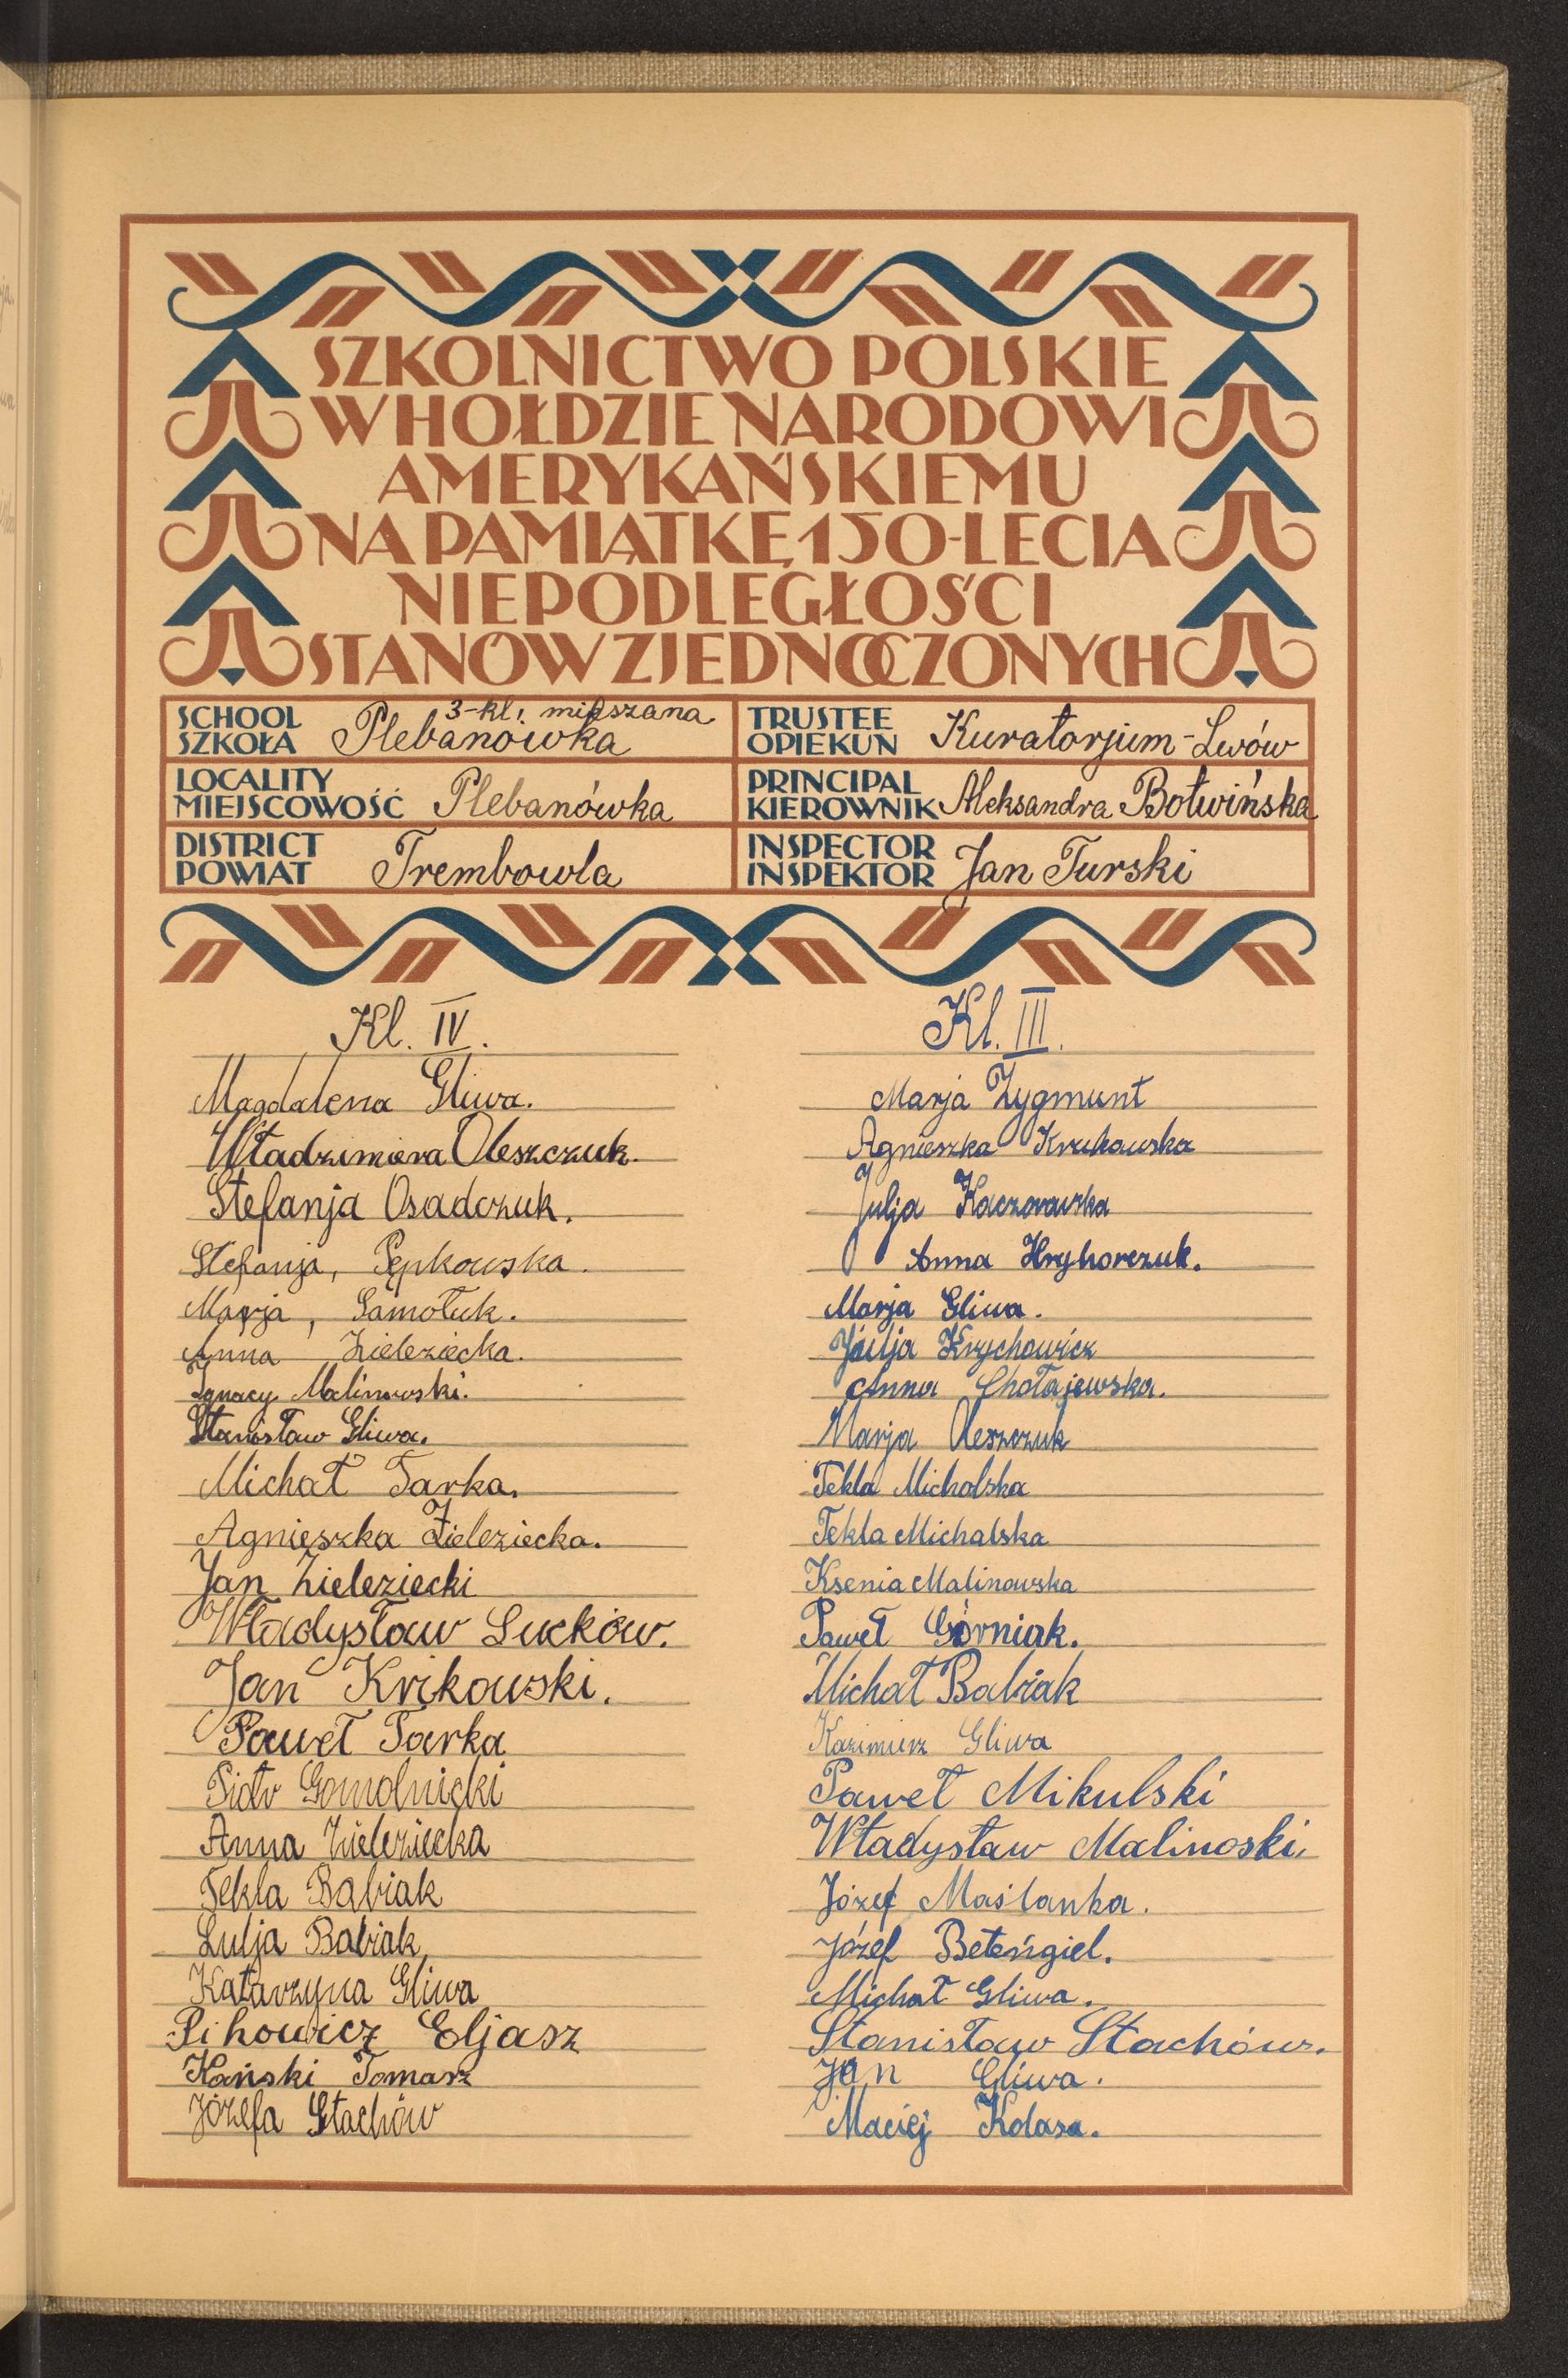 SZKOLNICTWO POLSKIE
W HOŁDZIE NARODOWI
AMERYKAŃSKIEMU
NA PAMIĄTKĘ 150-LECIA
NIEPODLEGŁOŚCI
STANÓW ZJEDNOCZONYCH
SCHOOL
SZKOŁA
3-kl. mieszana
Plebanówka
TRUSTEE
OPIEKUN
Kuratorjum - Lwów
LOCALITY
MIEJSCOWOŚĆ
Plebanówka
PRINCIPAL
KIEROWNIK
Aleksandra Botwińska
DISTRICT
POWIAT
Trembowla
INSPECTOR
INSPEKTOR
Jan Turski
Kl. IV.
Magdalena Gliwa.
Władzimiera Oleszczuk.
Stefanja Osadczuk.
Stefanja, Pępkowska.
Marja, Samołuk.
Anna Zieleziecka.
Ignacy Malinowski.
Stanisław Gliwa.
Michał Tarka.
Agnieszka Zieleziecka.
Jan Zieleziecki
Władysław Łucków.
Jan Krikowski.
Paweł Tarka
Piotr Gomolnicki
Anna Zieleziecka
Tekla Babiak
Lulja Babiak,
Katarzyna Gliwa
Pihowicz Eljasz
Kański Tomasz
Józefa Stachów
Kl. III.
Marja Zygmunt
Agnieszka Krukowska
Julja Kaczorowska
Anna Hryhorczuk.
Marja Gliwa.
Julja Krychowicz
Anna Chołajewska.
Marja Oleszczuk
Tekla Michalska
Tekla Michalska
Ksenia Malinowska
Paweł Górniak.
Michał Babiak
Kazimierz Gliwa
Paweł Mikulski
Władysław Malinoski.
Józef Maślanka.
Józef Beteńgiel.
Michał Gliwa.
Stanisław Stachów.
Jan Gliwa.
Maciej Kolasa.